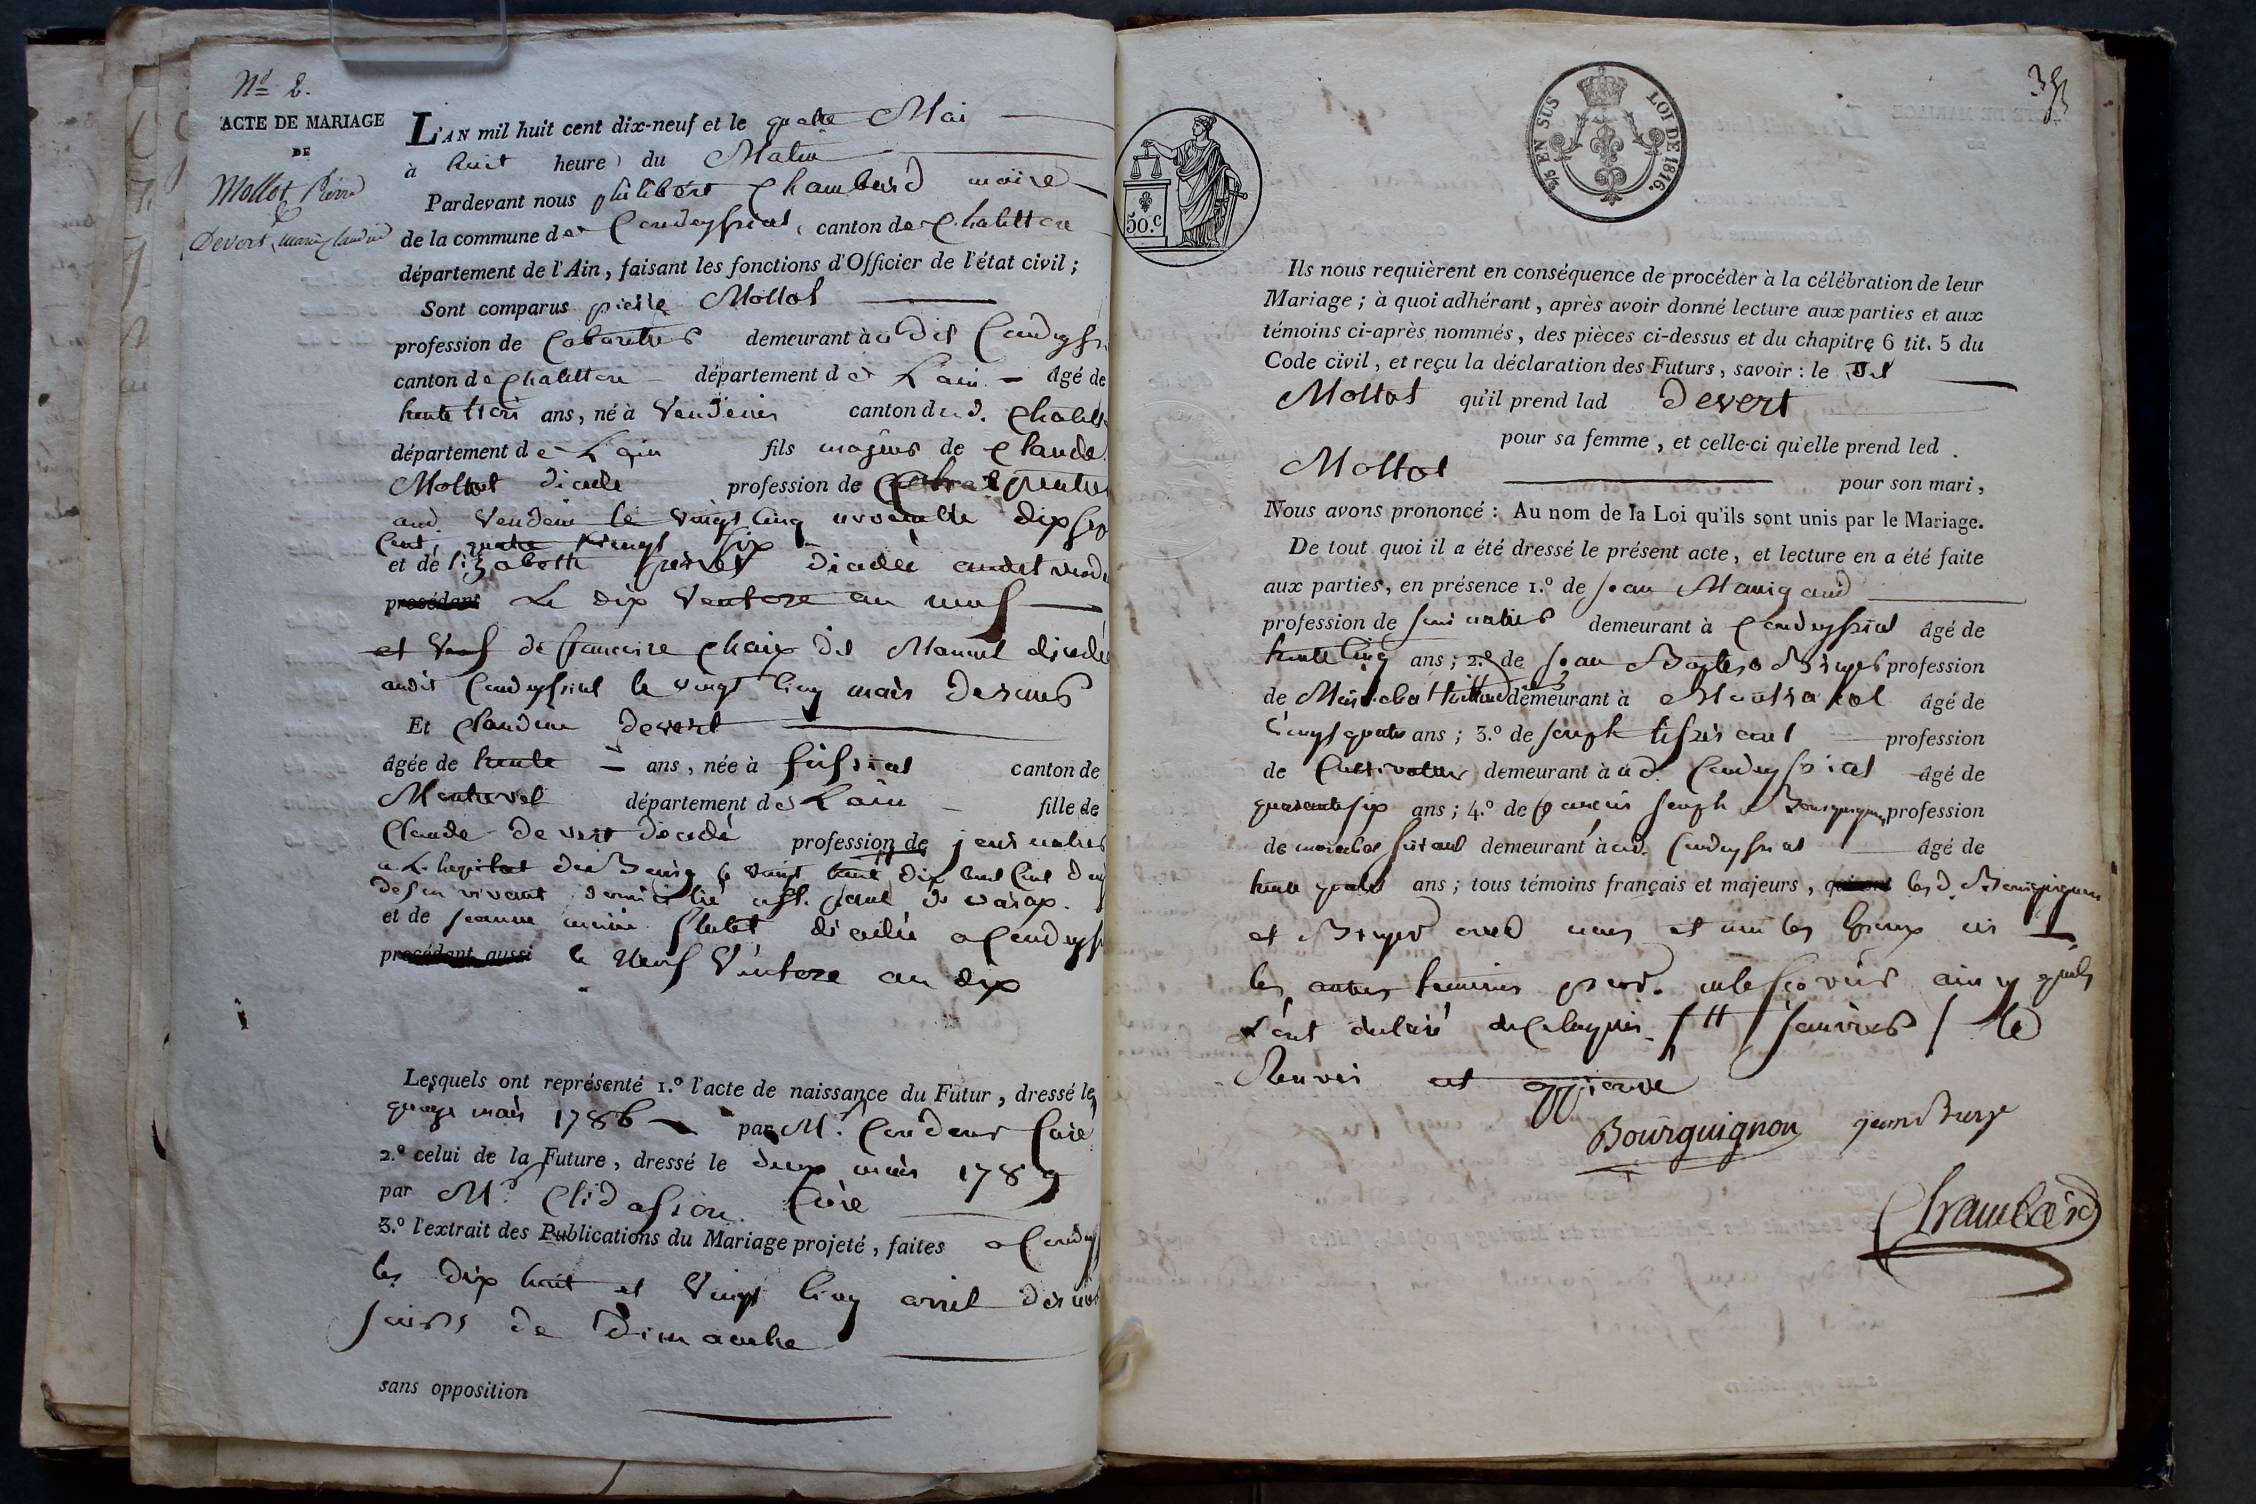 Nº 2.
ACTE DE MARIAGE
DE
Mollot Pierre
&
Devert, marie claudine
L'AN mil huit cent dix-neuf et le quatre Mai
à huit heure du Matin
Pardevant nous philibert Chambard maire
de la commune de Condeyssiat, canton de Chatillon
département de l'Ain, faisant les fonctions d'Officier de l'état civil;
Sont comparus pierre Mollot
profession de Cabaretier demeurant à udit Condeyssi
canton de Chatillon département de Lain âgé de
trente trois ans, né à Vendeins canton dud. Chatill
département de Lain fils majeur de Claude
Mollot décédé profession de
aud Vendein le vingt cinq novembre dix sep
Cent quatre vingt six
et de Elizabeth décédée audit vend
procédant Le dix Ventose an neuf
et Veuf de francoise Chaix dit décédée
audit Condeyssiat le vingt cinq mars dernier
Et Claudine Devert
âgée de trente ans, née à foissiat canton de
Montrevel département de Lain fille de
Claude Devert décédé profession de journalier
a L'hopital de Bourg le vingt dix huit Cent
de son vivant domicilié a St. paul de varax.
et de jeanne marie décédée a Condeyssi
procédant aussi le Neuf Ventose an dix
Lesquels ont représenté 1.º l'acte de naissance du Futur, dressé le
quinze mars 1786 par Mr. Curé
2.º celui de la Future, dressé le deux mars 1789
par Mr. Curé
3.º l'extrait des Publications du Mariage projeté, faites a Condey
les dix huit et vingt cinq avril dernier
jours de Dimanche
sans opposition
35
5/5 EN SUS LOI DE 1816.
50.c
Ils nous requièrent en conséquence de procéder à la célébration de leur
Mariage; à quoi adhérant, après avoir donné lecture aux parties et aux
témoins ci-après nommés, des pièces ci-dessus et du chapitre 6 tit. 5 du
Code civil, et reçu la déclaration des Futurs, savoir: le Dit
Mollot qu'il prend lad Devert
pour sa femme, et celle-ci qu'elle prend led.
Mollot pour son mari,
Nous avons prononcé: Au nom de la Loi qu'ils sont unis par le Mariage.
De tout quoi il a été dressé le présent acte, et lecture en a été faite
aux parties, en présence 1.º de jean Manigand
profession de journalier demeurant à Condeyssiat âgé de
trente cinq ans; 2.º de jean Baptiste profession
de demeurant à Montracol âgé de
vingt quatre ans; 3.º de joseph profession
de Cultivateur demeurant à ud. Condeyssiat âgé de
quarante six ans; 4.º de francois joseph Bourguignon profession
de marechal ferrant demeurant à ud. Condeyssiat âgé de
trente quatre ans; tous témoins français et majeurs, lesd. Bourguignon
et avec nous et non les Epoux ni
les autres temoins pour ne le scavoir ainsy quils
l'ont declaré de Ce enquis
Renvoi est approuvé
Bourguignon
Chambard